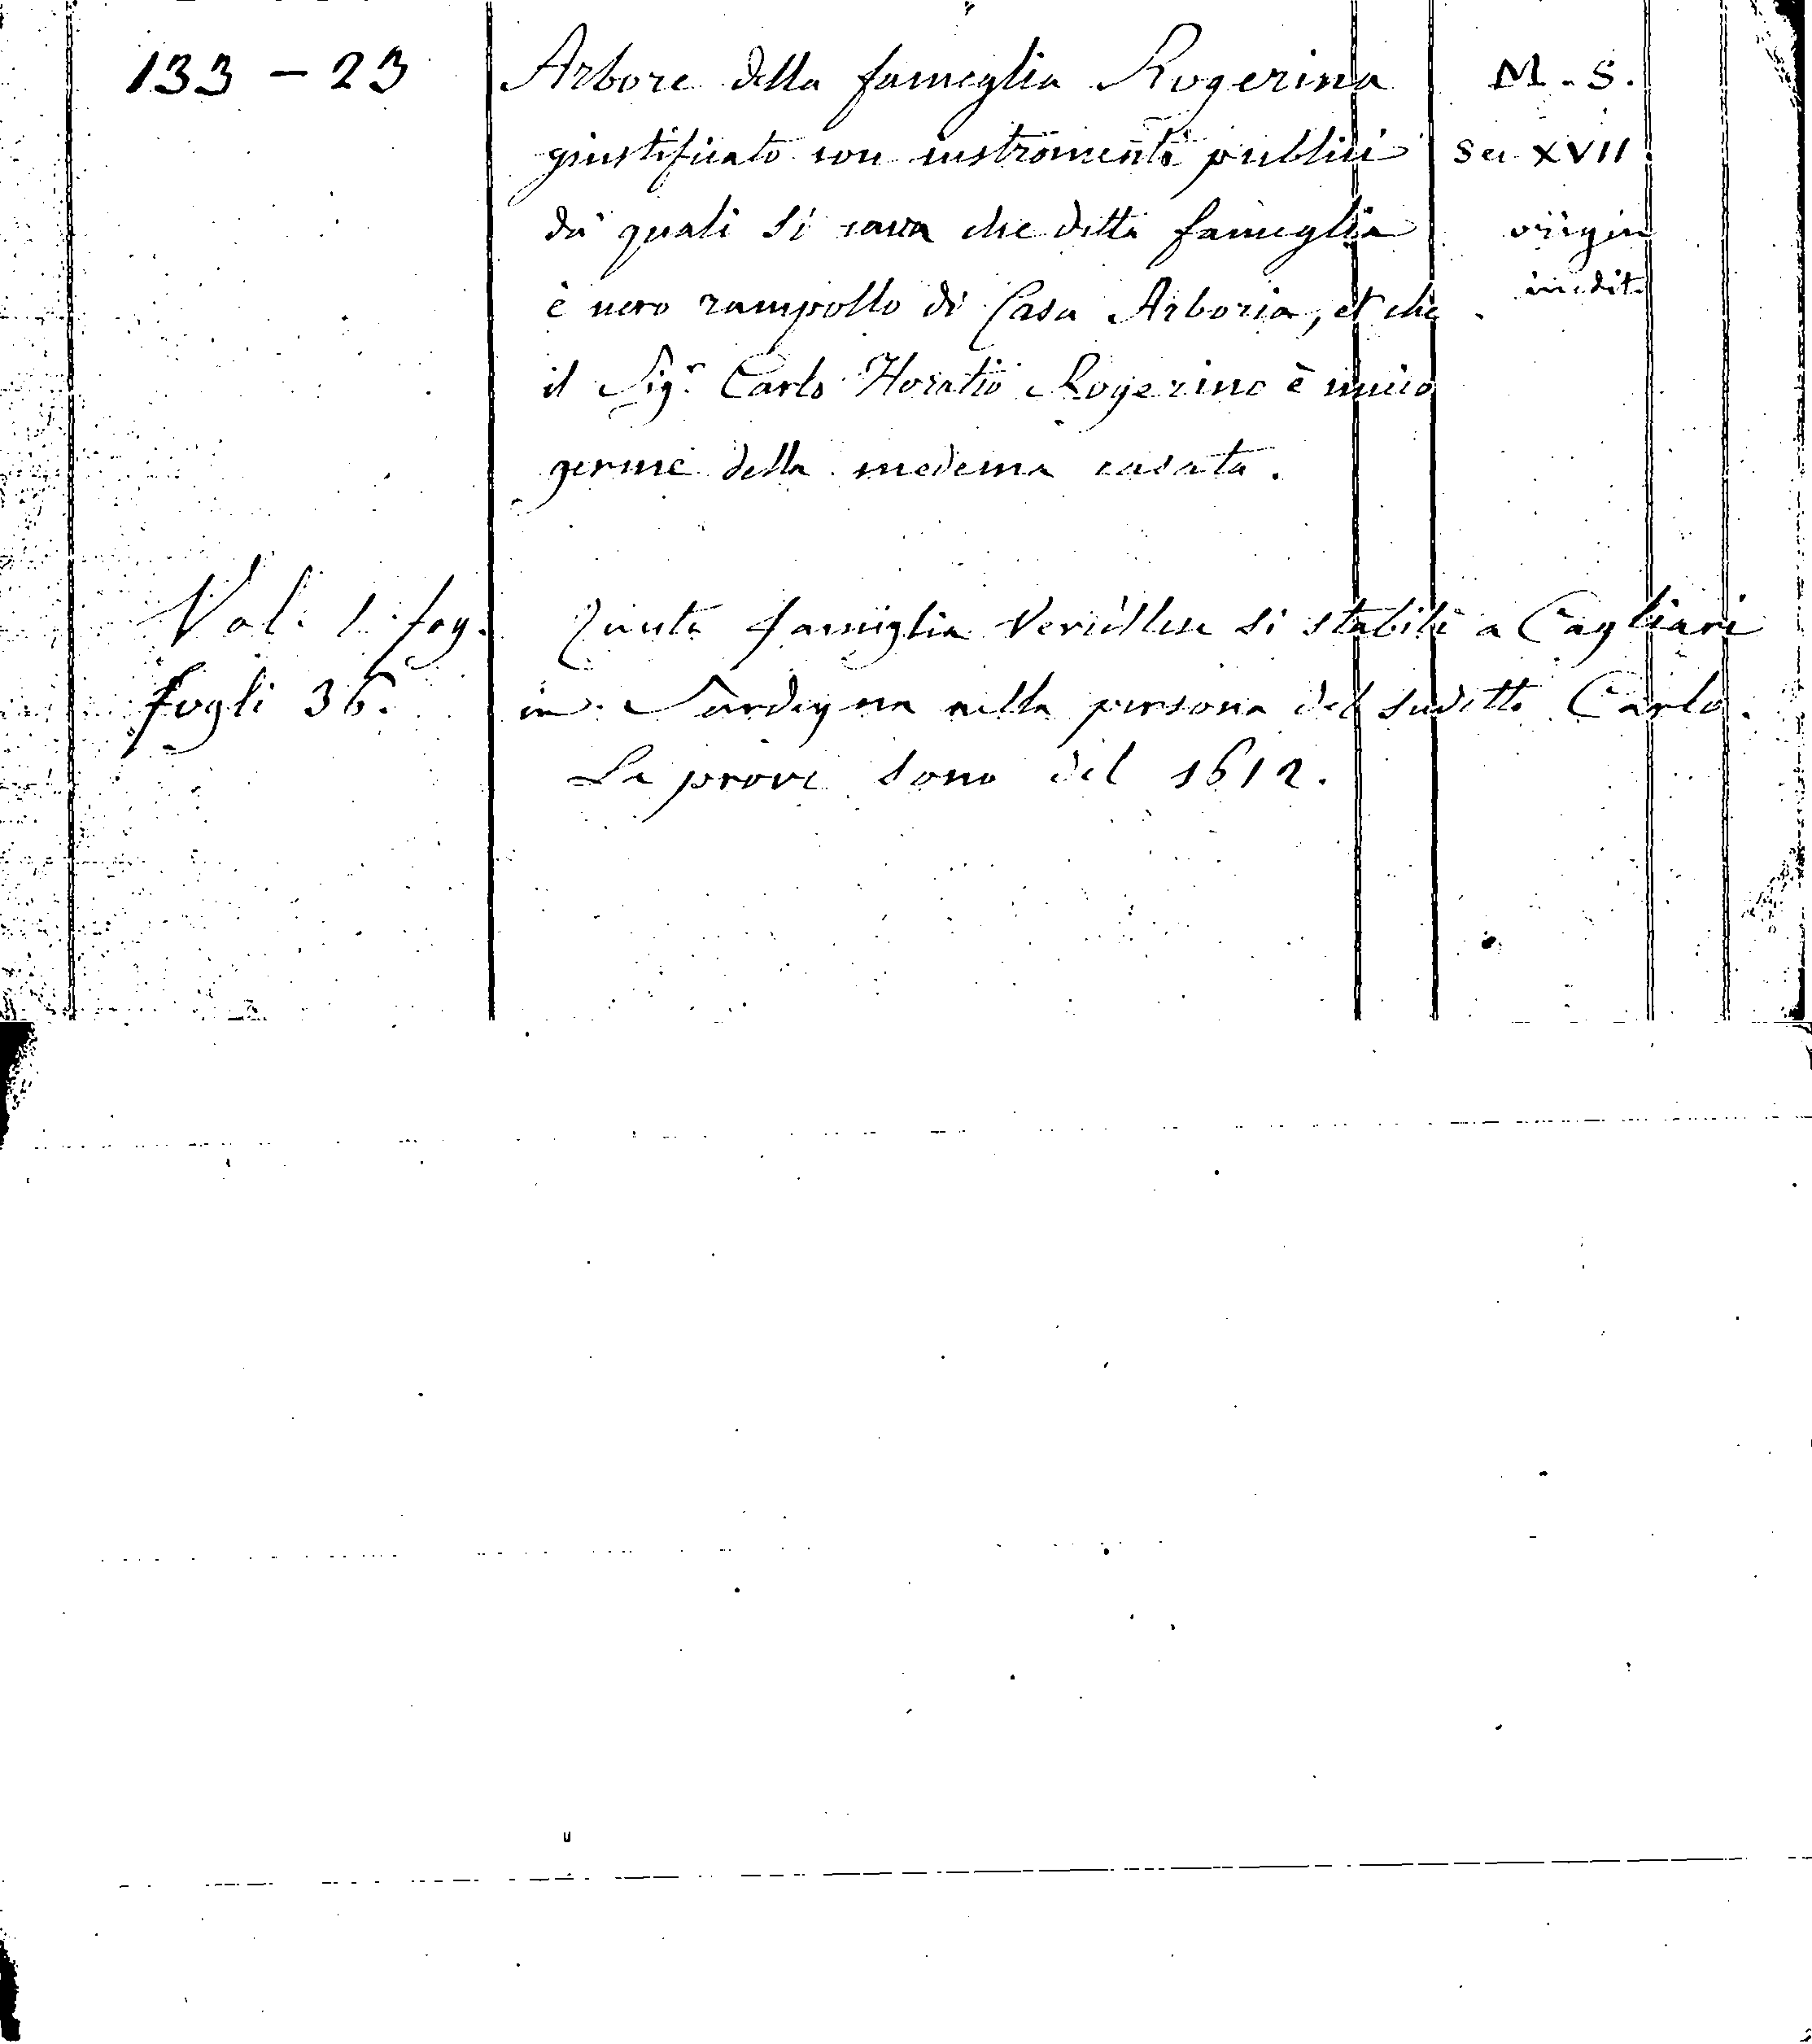 133 - 23
Arbore della fameglia Rogerina
M. S.
giustificato con instromenti publici
Sec XVII.
da quali si cava che detta fameglia
origin
è vero rampollo di Casa Arboria, et che
inedit.
il Sigr. Carlo Horatio Rogerino è unico
germe della medema casata.
Vol. 1. fog.
Questa famiglia Vercellese si stabilì a Cagliari
fogli 36.
in Sardegna nella persona del sudetto Carlo.
Le prove sono del 1612.